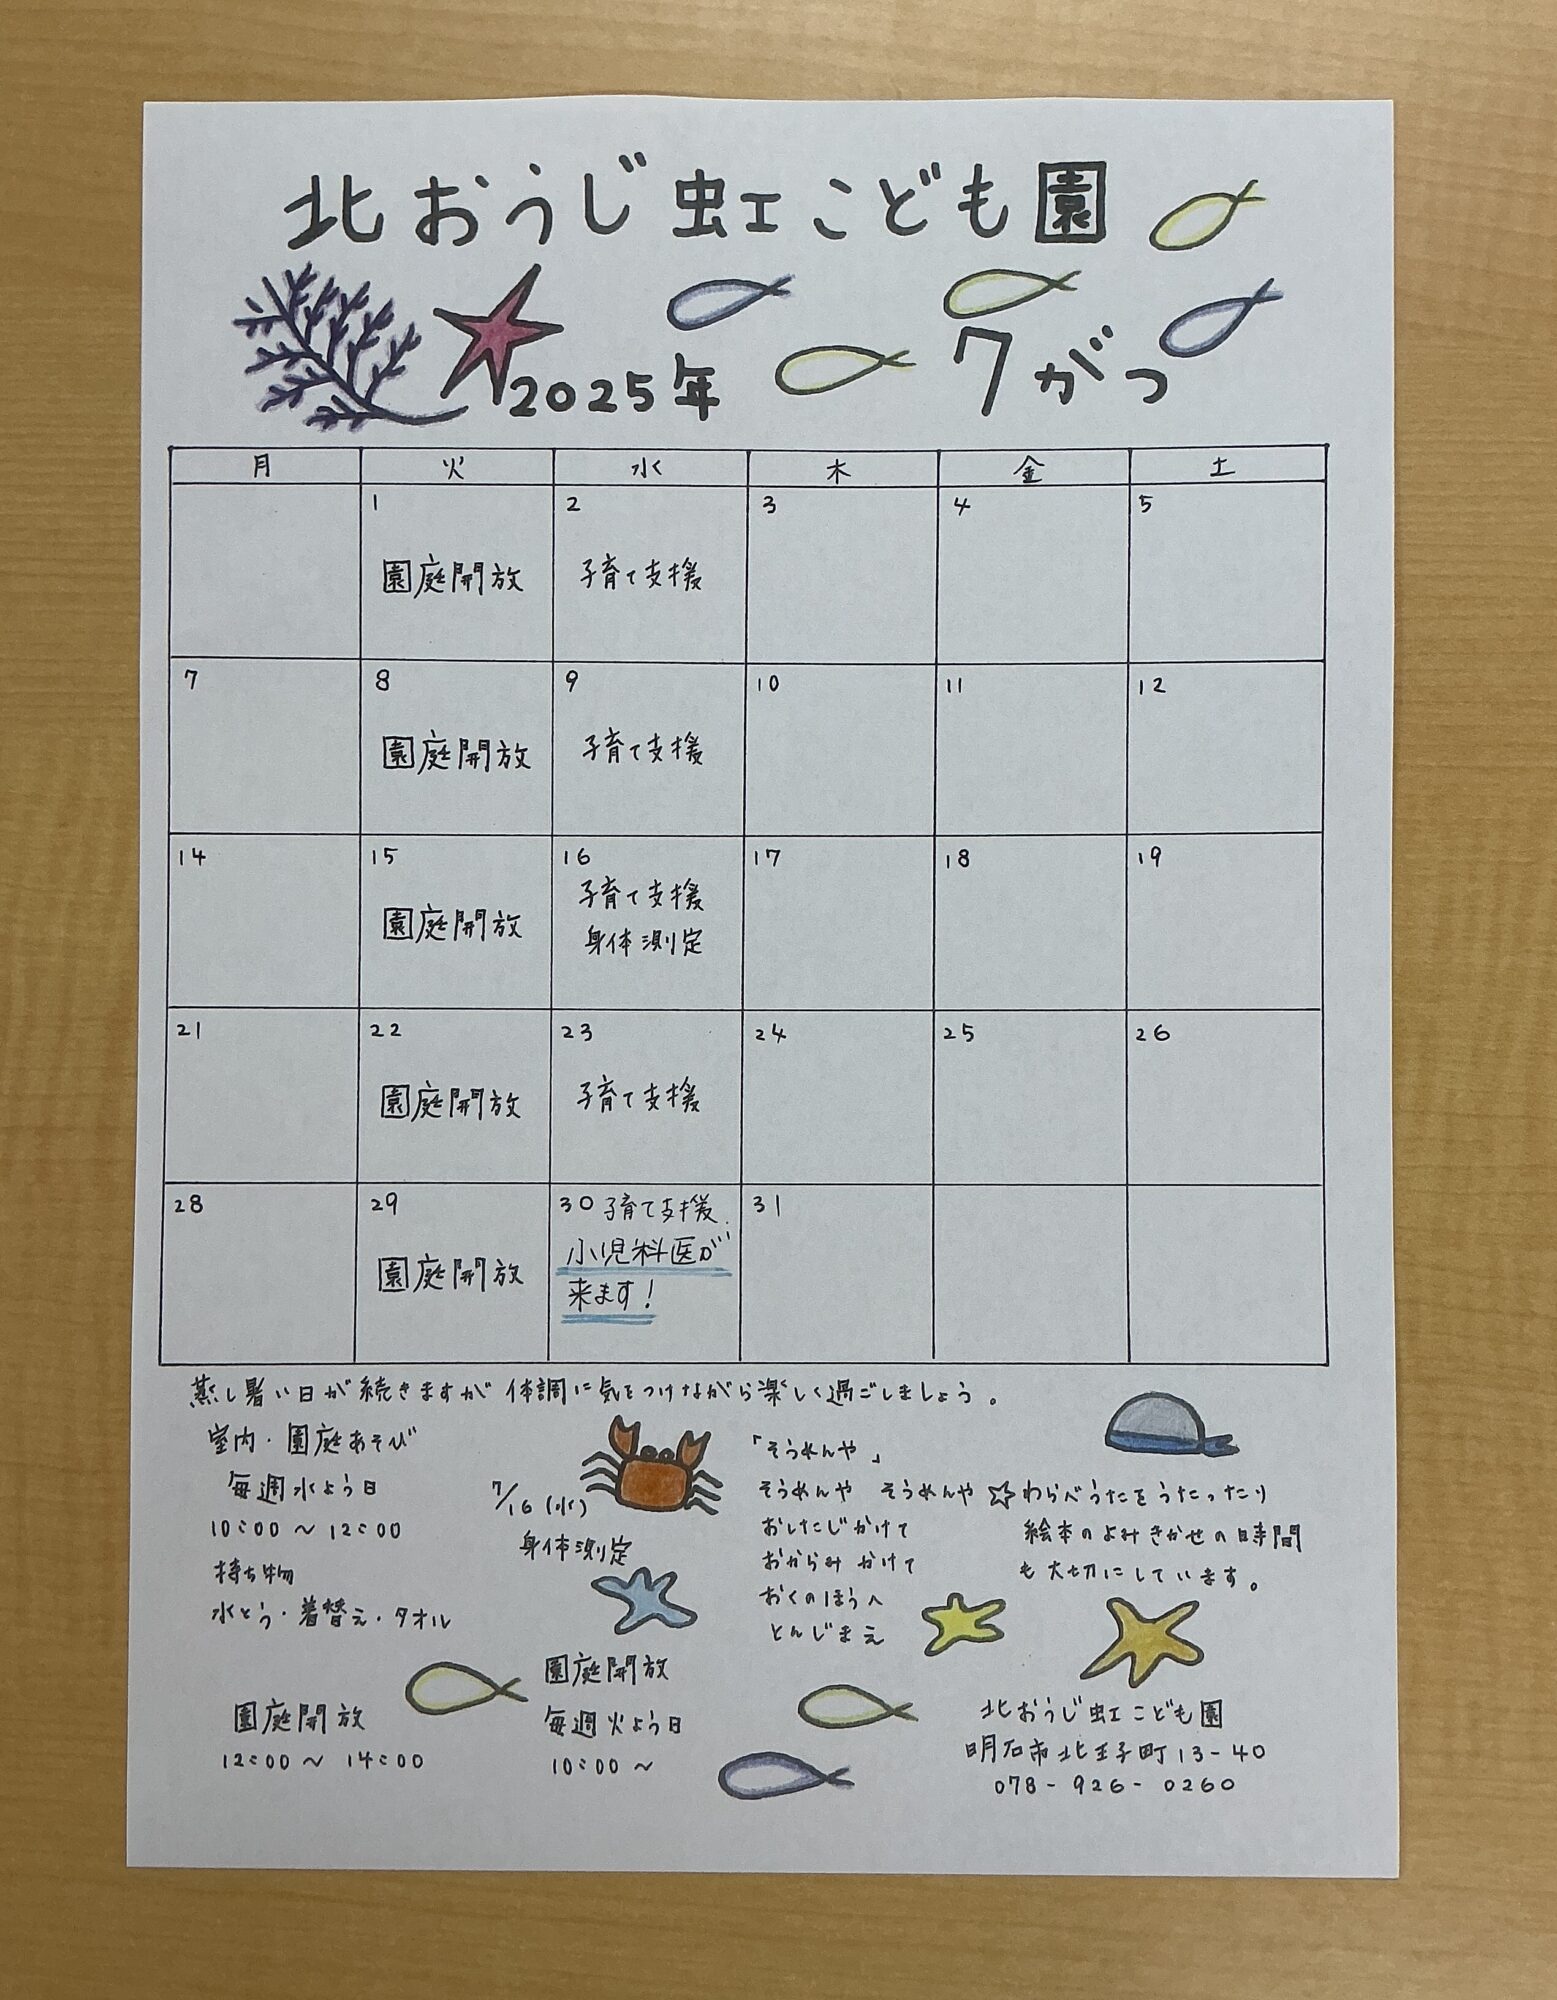 北おうじ虹こども園
2025年 7がつ
月 火 水 木 金 土
1 2 3 4 5
園庭開放 子育て支援
7 8 9 10 11 12
園庭開放 子育て支援
14 15 16 17 18 19
園庭開放 子育て支援
身体測定
21 22 23 24 25 26
園庭開放 子育て支援
28 29 30 子育て支援 31
園庭開放 小児科医が
来ます!
蒸し暑い日が続きますが体調に気をつけながら楽しく過ごしましょう。
室内・園庭あそび
毎週水よう日
10:00〜12:00
持ち物
水とう・着替え・タオル
園庭開放
12:00〜14:00
7/16(水)
身体測定
園庭開放
毎週火よう日
10:00〜
「そうめんや」
そうめんや そうめんや
おしたじかけて
おからみかけて
おくのほうへ
とんじまえ
☆わらべうたをうたったり
絵本のよみきかせの時間
も大切にしています。
北おうじ虹こども園
明石市北王子町13-40
078-926-0260